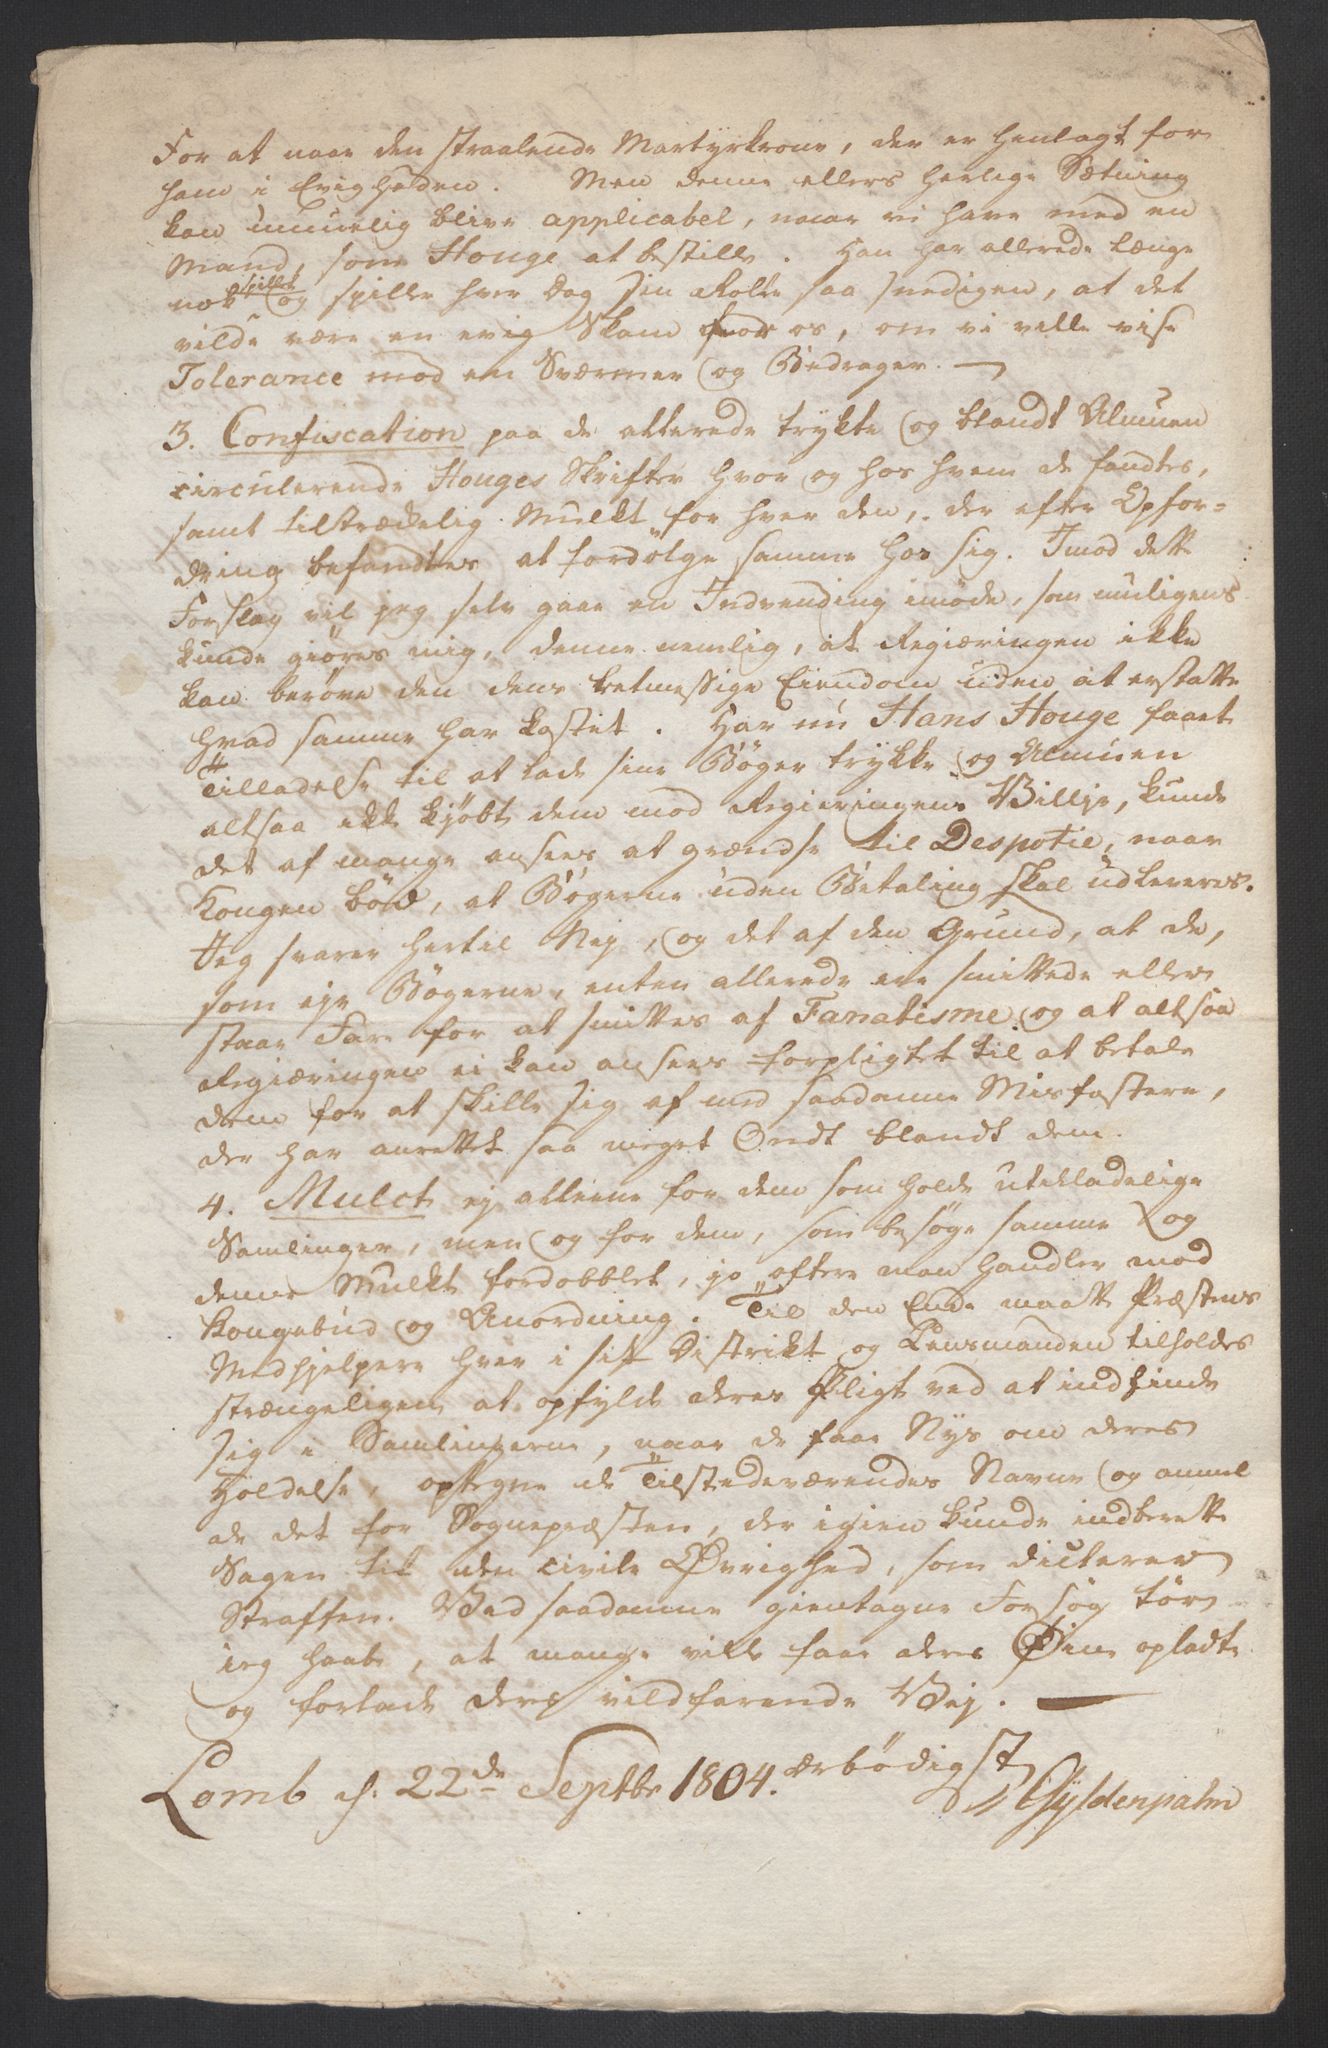 For at naae den straalende Martyrkrone, der er henlagt for
ham i Evigheden. Men denne ellers herlige Sætning
kan umuelig blive applicabel, naar vi have med en
Mand, som Houge at bestille. Han har allerede længe
nok spillet og spiller hver Dag sin Rolle saa snedigen, at det
vilde være en evig Skam for os, om vi ville vise
Tolerance mod en Sværmer og Bedrager. —
3. Confiscation paa de allerede trykte og blandt Almuen
circulerende Houges Skrifter hvor og hos hvem de fandtes,
samt tilstrækkelig Mulkt for hver den, der efter Opfor-
dring befandtes at fordølge samme hos sig. Imod dette
Forslag vil jeg selv gaae en Indvending imøde, som muligens
kunde giøres mig, denne nemlig, at Regiæringen ikke
kan berøve den dens retmessige Eiendom uden at erstatte
hvad samme har kostet. Har nu Hans Houge faaet
Tilladelse til at lade sine Bøger trykke og Almuen
altsaa ikke kjøbt dem mod Regieringens Villje, kunde
det af mange ansees at grændse til Despotie, naar
Kongen bød, at Bøgerne uden Betaling skal udleveres.
Jeg svarer hertil Nej, og det af den Grund, at de,
som eje Bøgerne, enten allerede ere smittede eller
staae Fare for at smittes af Fanatisme og at altsaa
Regiæringen ei kan ansees forpligtet til at betale
dem for at skille sig af med saadanne Misfostere,
der har anrettet saa meget Ondt blandt dem.
4. Mulct ej alleene for dem som holde utilladelige
Samlinger, men og for dem, som besøge samme og
denne Mulkt fordobblet, jo oftere man handler mod
Kongebud og Anordning. Til den Ende maatte Præstens
Medhjelpere hver i sit Distrikt og Lensmanden tilholdes
strængeligen at opfylde deres Pligt ved at indfinde
sig i Samlingerne, naar de faae Nys om deres
Holdelse, optegne de Tilstedeværendes Navne og anmel
de det for Sognepræsten, der igien kunde indberette
Sagen til den civile Øvrighed, som dicterer
Straffen. Ved saadanne gientagne Forsøg tør
jeg haabe, at mange ville faae deres Øine opladte
og forlade deres vildfarende Vej. —
Lomb d. 22de Septbr 1804. ærbødigst
Gyldenpalm